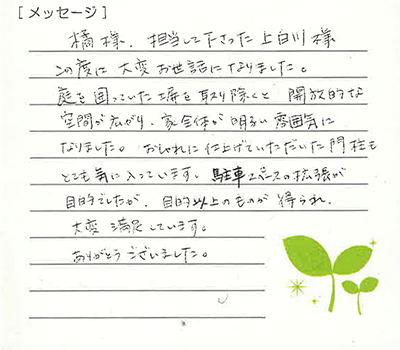 [メッセージ]
橘様、担当して下さった上白川様
この度は大変お世話になりました。
庭を囲っていた塀を取り除くと開放的な
空間が広がり、家全体が明るい雰囲気に
なりました。おしゃれに仕上げていただいた門柱も
とても気に入っています。駐車スペースの拡張が
目的でしたが、目的以上のものが得られ、
大変満足しています。
ありがとうございました。